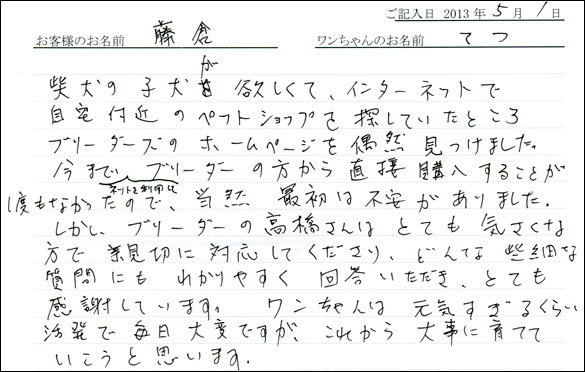 ご記入日 2013年5月1日
お客様のお名前 藤倉 ワンちゃんのお名前 てつ
柴犬の子犬が欲しくて、インターネットで
自宅付近のペットショップを探していたところ
ブリーダーズのホームページを偶然見つけました。
今まで、ブリーダーの方から直接購入することが
ネットを利用して
1度もなかったので、当然最初は不安がありました。
しかし、ブリーダーの高橋さんはとても気さくな
方で親切に対応してくださり、どんな些細な
質問にもわかりやすく回答いただき、とても
感謝しています。ワンちゃんは元気すぎるくらい
活発で毎日大変ですが、これから大事に育てて
いこうと思います。